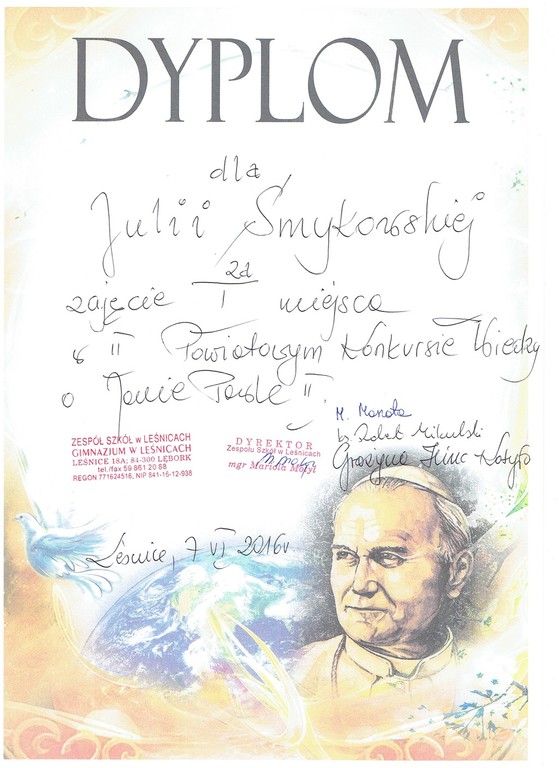 DYPLOM
dla
Julii Smykowskiej
za
zajęcie I miejsca
w II Powiatowym Konkursie Wiedzy
o Janie Pawle II.
ZESPÓŁ SZKÓŁ w LEŚNICACH
GIMNAZJUM W LEŚNICACH
LEŚNICE 18A; 84-300 LĘBORK
tel./fax 59 861 20 88
REGON 771624516, NIP 841-15-12-938
DYREKTOR
Zespołu Szkół w Leśnicach
mgr Mariola Motyl
M. Manota
ks. Mikulski
Grażyna
Leśnice, 7 VI 2016r.